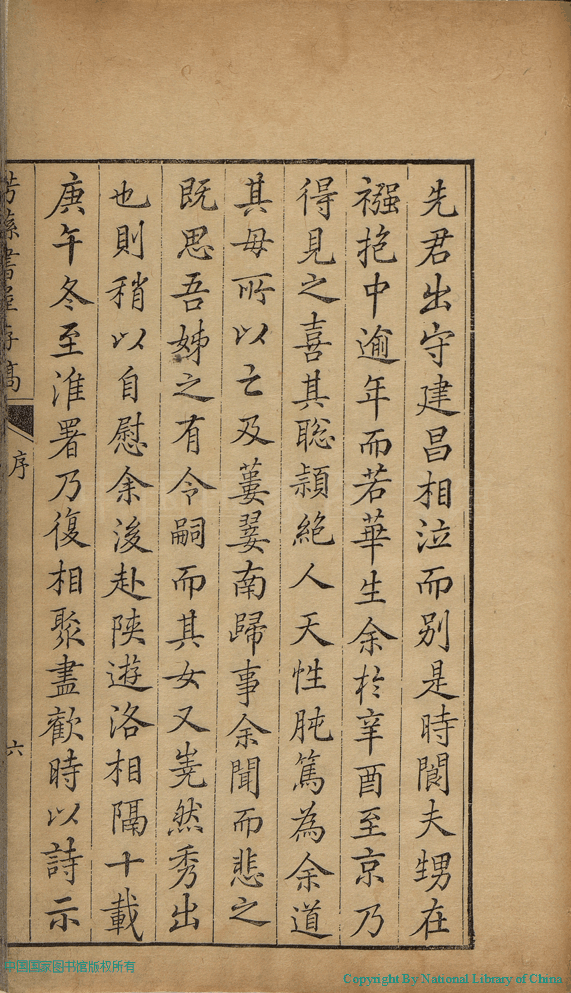 先君出守建昌相泣而别是時閬夫甥在
襁抱中逾年而若華生余於辛酉至京乃
得見之喜其聡頴絶人天性肫篤為余道
其母所以亡及蔞翣南歸事余聞而悲之
既思吾姊之有令嗣而其女又嶤然秀出
也則稍以自慰余後赴陝遊洛相隔十載
庚午冬至淮署乃復相聚盡歡時以詩示
序
六
中国国家图书馆版权所有
Copyright By National Library of China